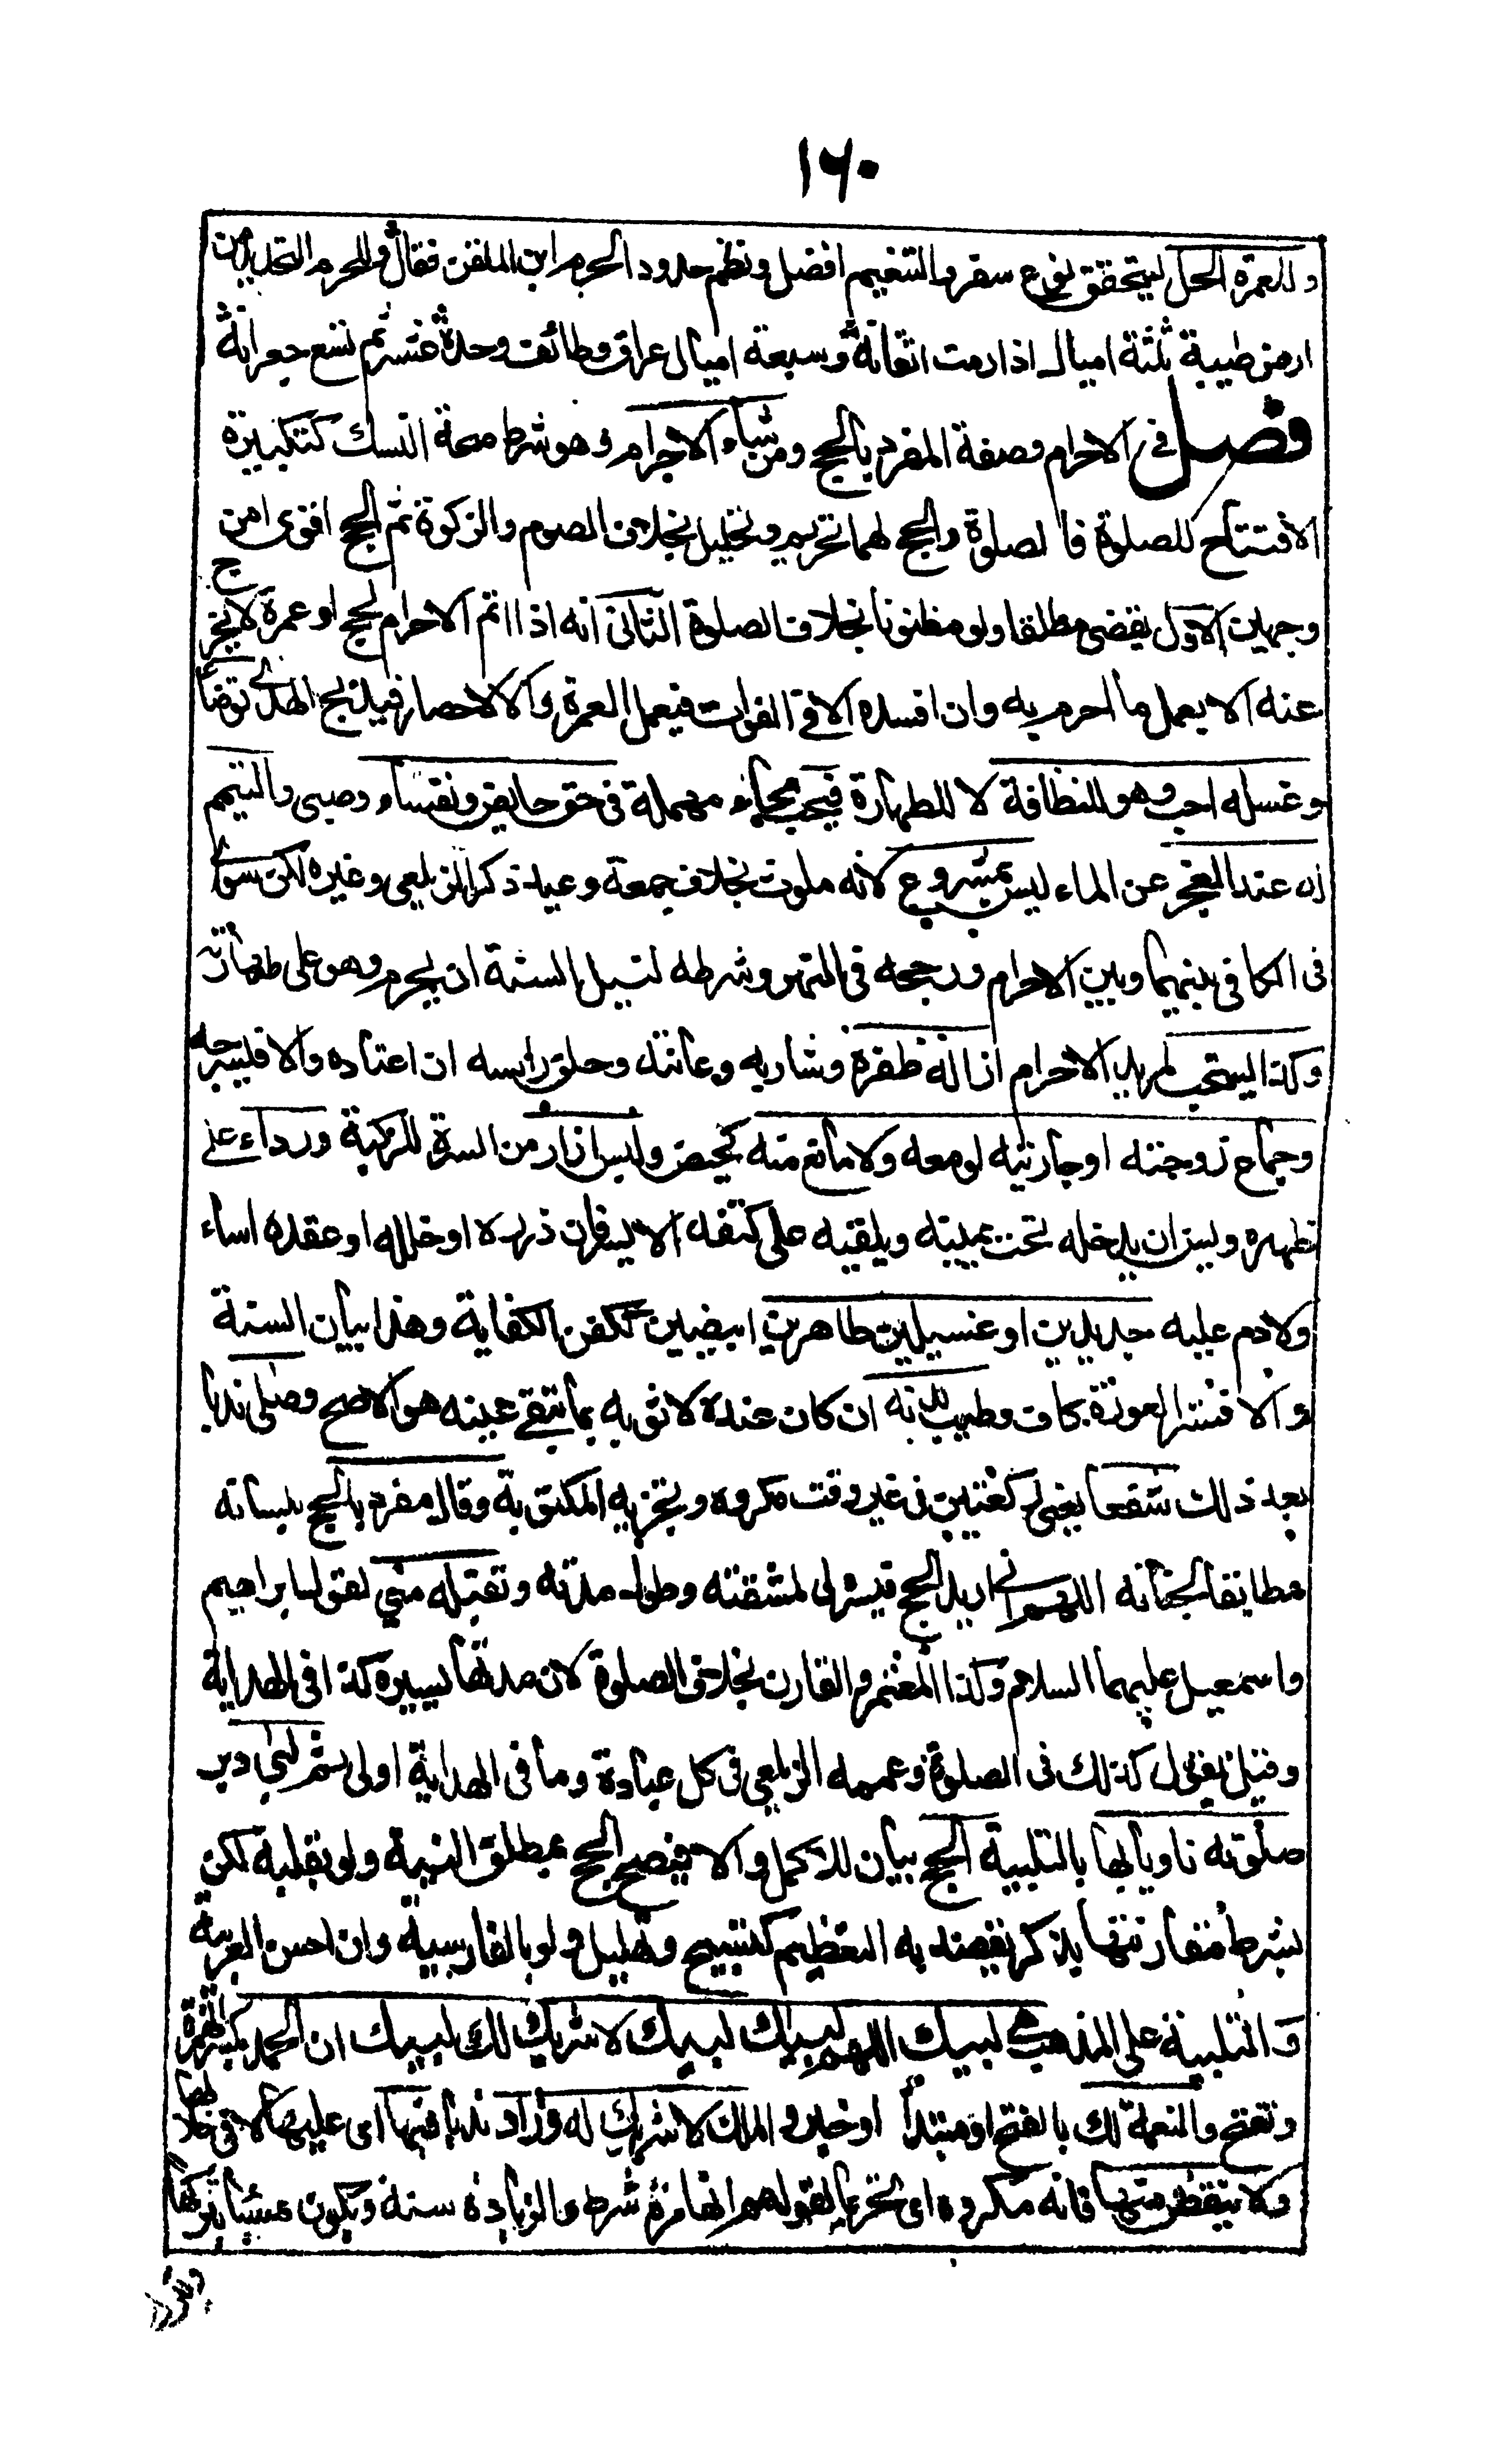 ١٦٠
وللعمرة الحل ليتحقق نوع سفر والتنعيم افضل ونظم حدود الحرم ابن الملقن فقال وللحرم التحديد من
ارض طيبة ثلثة اميال اذا رمت اتقانه وسبعة اميال عراق وطائف وجدة عشر ثم تسع جعرانة
فصل في الاحرام وصفة المفرد بالحج ومن شاء الاحرام وهو شرط صحة النسك كتكبيرة
الافتتاح للصلوة فالصلوة والحج لهما تحريم وتحليل بخلاف الصوم والزكوة ثم الحج اقوى من
وجهين الاول يقضى مطلقا ولو مظنونا بخلاف الصلوة الثانى انه اذا اتم الاحرام لحج او عمرة لا يخرج
عنه الا بعمل ما احرم به وان افسده الا في الفوات فيعمل العمرة والا الاحصار فيذبح الهدى توضأ
وغسله احب وهو للنظافة لا للطهارة فيحب بحاء مهملة في حق حايض ونفساء وصبى والتيمم
له عند العجز عن الماء ليس بمشروع لانه ملوث بخلاف جمعة وعيد ذكره الزيلعى وغيره لكن سوى
فى الكافى بينهما وبين الاحرام ورجحه فى النهر وشرطه لنيل السنة ان يحرم وهو على طهارته
وكذا يستحب لمريد الاحرام ازالة ظفره وشاربه وعانته وحلق راسه ان اعتاده والا فليسرحه
وجماع زوجته او جاريته لو معه ولا مانع منه كحيض ولبس ازار من السرة للركبة ورداء على
ظهره ويسن ان يدخله تحت يمينه ويلقيه على كتفه الايسر فان زرره او خلله او عقده اساء
ولا دم عليه جديدين او غسيلين طاهرين ابيضين ككفن الكفاية وهذا بيان السنة
والا فستر العورة كاف وطيب بدنه ان كان عنده لا ثوبه بما تبقى عينه هو الاصح وصلى ندبا
بعد ذلك شفعا يعنى ركعتين في غير وقت مكروه وتجزيه المكتوبة وقال مفرد بالحج بلسانه
مطابقا لجنانه اللهم انى اريد الحج فيسره لى لمشقته وطول مدته وتقبله منى لقول ابراهيم
واسمعيل عليهما السلام وكذا المعتمر والقارن بخلاف الصلوة لان مدتها يسيرة كذا فى الهداية
وقيل يقول كذلك فى الصلوة وعممه الزيلعى فى كل عبادة وما فى الهداية اولى ثم لبى دبر
صلوته ناويا بها بالتلبية الحج بيان للاكمل والا فيصح الحج بمطلق النية ولو بقلبه لكن
بشرط مقارنتها بذكر يقصد به التعظيم كتسبيح وتهليل ولو بالفارسية وان احسن العربية
والتلبية على المذهب هى لبيك اللهم لبيك لبيك لا شريك لك لبيك ان الحمد بكسر الهمزة
وتفتح والنعمة لك بالفتح او مبتدأ او خبر والملك لا شريك له وزاد ندبا فيها اى عليها لا فى خلالها
ولا ينقص منها فانه مكروه اى تحريما لقولهم انها مرة شرط والزيادة سنة ويكون مسيئا بتركها